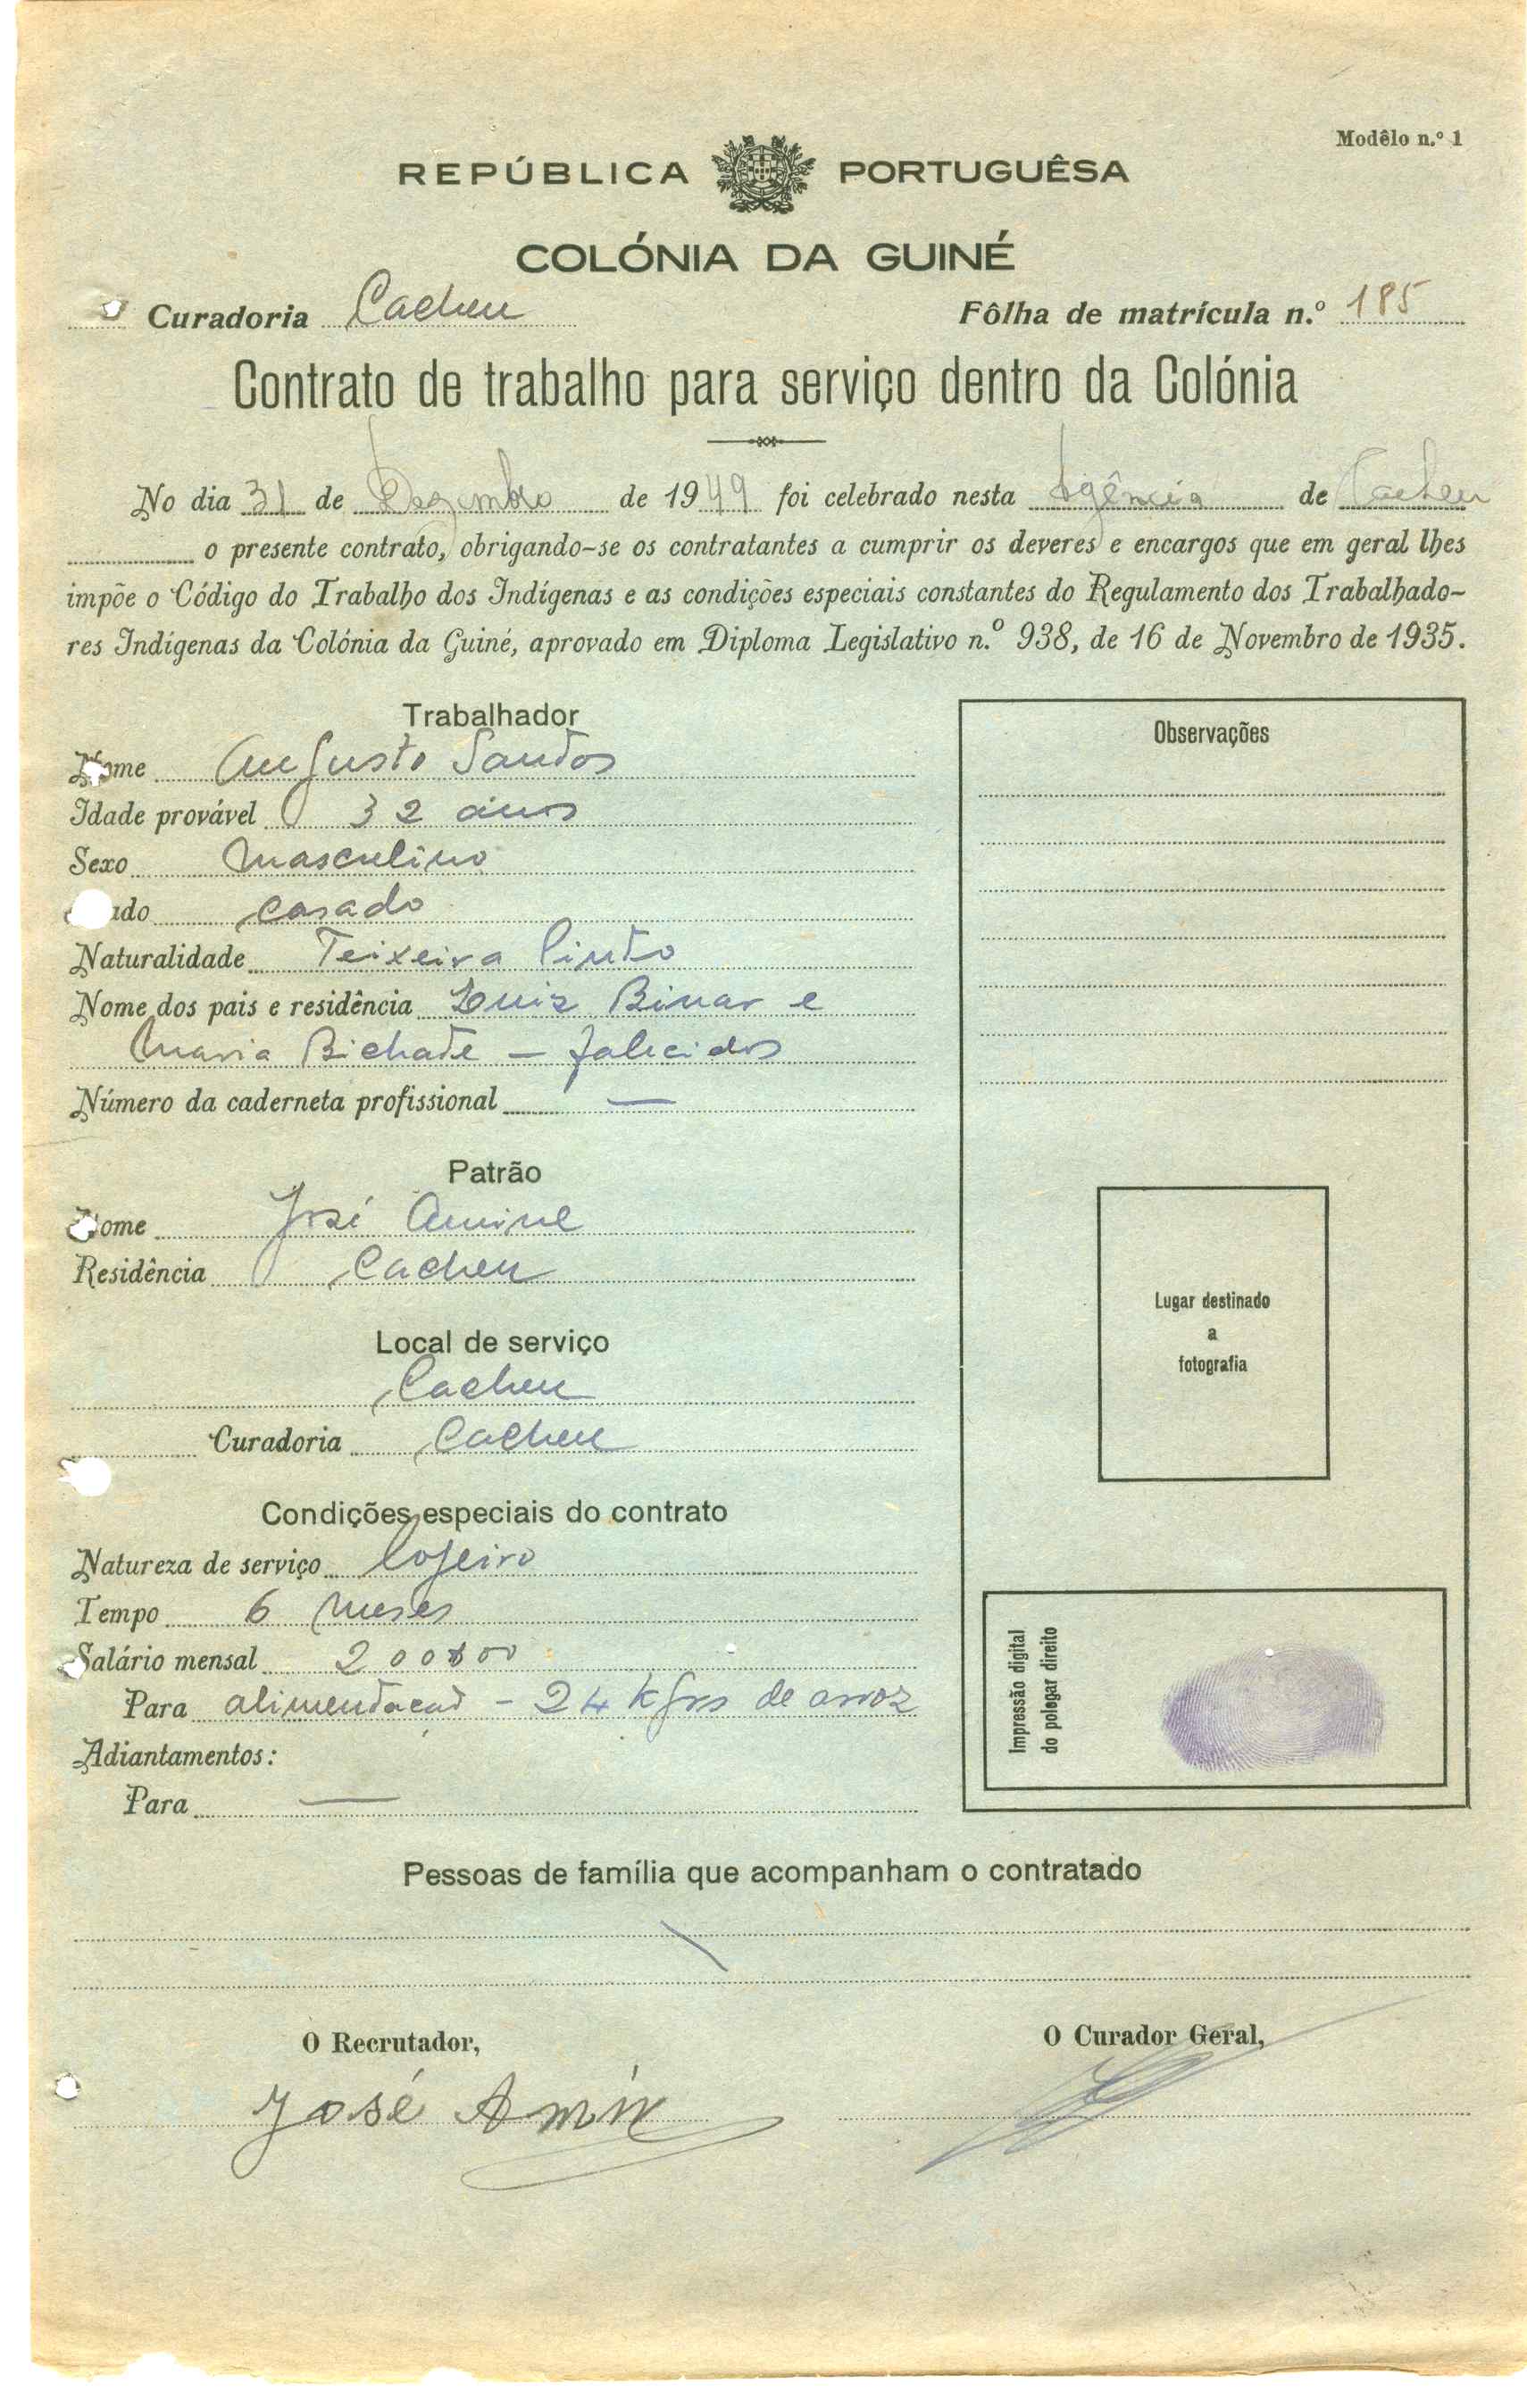 Modêlo n.º 1
REPÚBLICA PORTUGUÊSA
COLÓNIA DA GUINÉ
Curadoria Cacheu Fôlha de matrícula n.º 185
Contrato de trabalho para serviço dentro da Colónia
No dia 31 de Dezembro de 1949 foi celebrado nesta Agência de Cacheu
o presente contrato, obrigando-se os contratantes a cumprir os deveres e encargos que em geral lhes
impõe o Código do Trabalho dos Indígenas e as condições especiais constantes do Regulamento dos Trabalhado-
res Indígenas da Colónia da Guiné, aprovado em Diploma Legislativo n.º 938, de 16 de Novembro de 1935.
Trabalhador
Nome Augusto Santos
Idade provável 32 anos
Sexo Masculino
ado casado
Naturalidade Teixeira Pinto
Nome dos pais e residência Luiz Binar e
Maria Bichate — falecidos
Número da caderneta profissional —
Patrão
Nome José Amine
Residência Cacheu
Local de serviço
Cacheu
Curadoria Cacheu
Condições especiais do contrato
Natureza de serviço
Tempo 6 meses
Salário mensal 200$00
Para alimentacao - 24 kgrs de arroz
Adiantamentos:
Para —
Observações
Lugar destinado
a
fotografia
Impressão digital
do polegar direito
Pessoas de família que acompanham o contratado
O Recrutador,
José Amin
O Curador Geral,